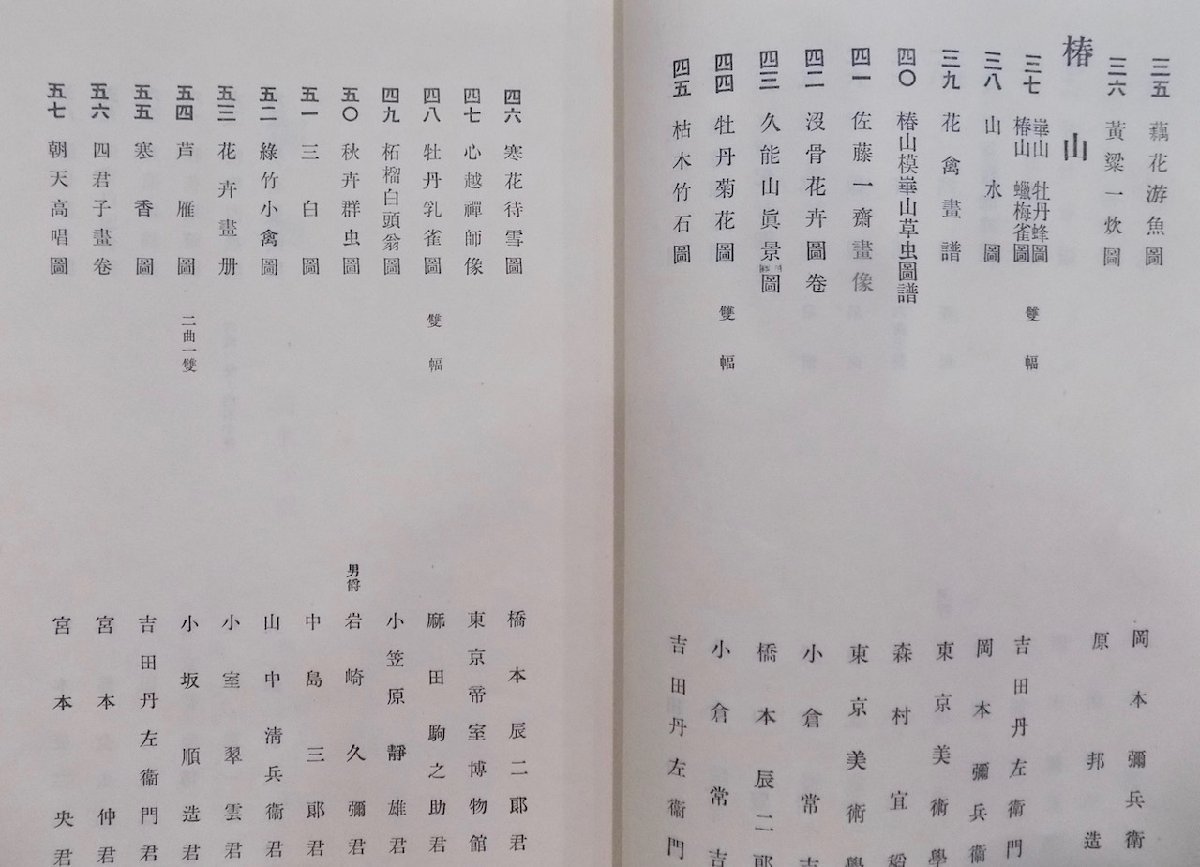 三五 藕花游魚圖 岡本彌兵衛
三六 黃粱一炊圖 原邦造
椿山
三七 崋山 牡丹蜂圖 椿山 蠟梅雀圖 雙幅 吉田丹左衞門
三八 山水圖 岡本彌兵衞
三九 花禽畫譜 東京美術學
四〇 椿山模崋山草虫圖譜 森村宜
四一 佐藤一齋畫像 東京美術學
四二 沒骨花卉圖卷 小倉常吉
四三 久能山眞景圖 橋本辰二郎
四四 牡丹菊花圖 雙幅 小倉常吉
四五 枯木竹石圖 吉田丹左衞門
四六 寒花待雪圖 橋本辰二郎君
四七 心越禪師像 東京帝室博物館
四八 牡丹乳雀圖 雙幅 麻田駒之助君
四九 柘榴白頭翁圖 小笠原靜雄君
五〇 秋卉群虫圖 男爵 岩崎久彌君
五一 三白圖 中島三郎君
五二 綠竹小禽圖 山中淸兵衞君
五三 花卉畫册 小室翠雲君
五四 芦雁圖 二曲一雙 小坂順造君
五五 寒香圖 吉田丹左衞門君
五六 四君子畫卷 宮本仲君
五七 朝天高唱圖 宮本央君